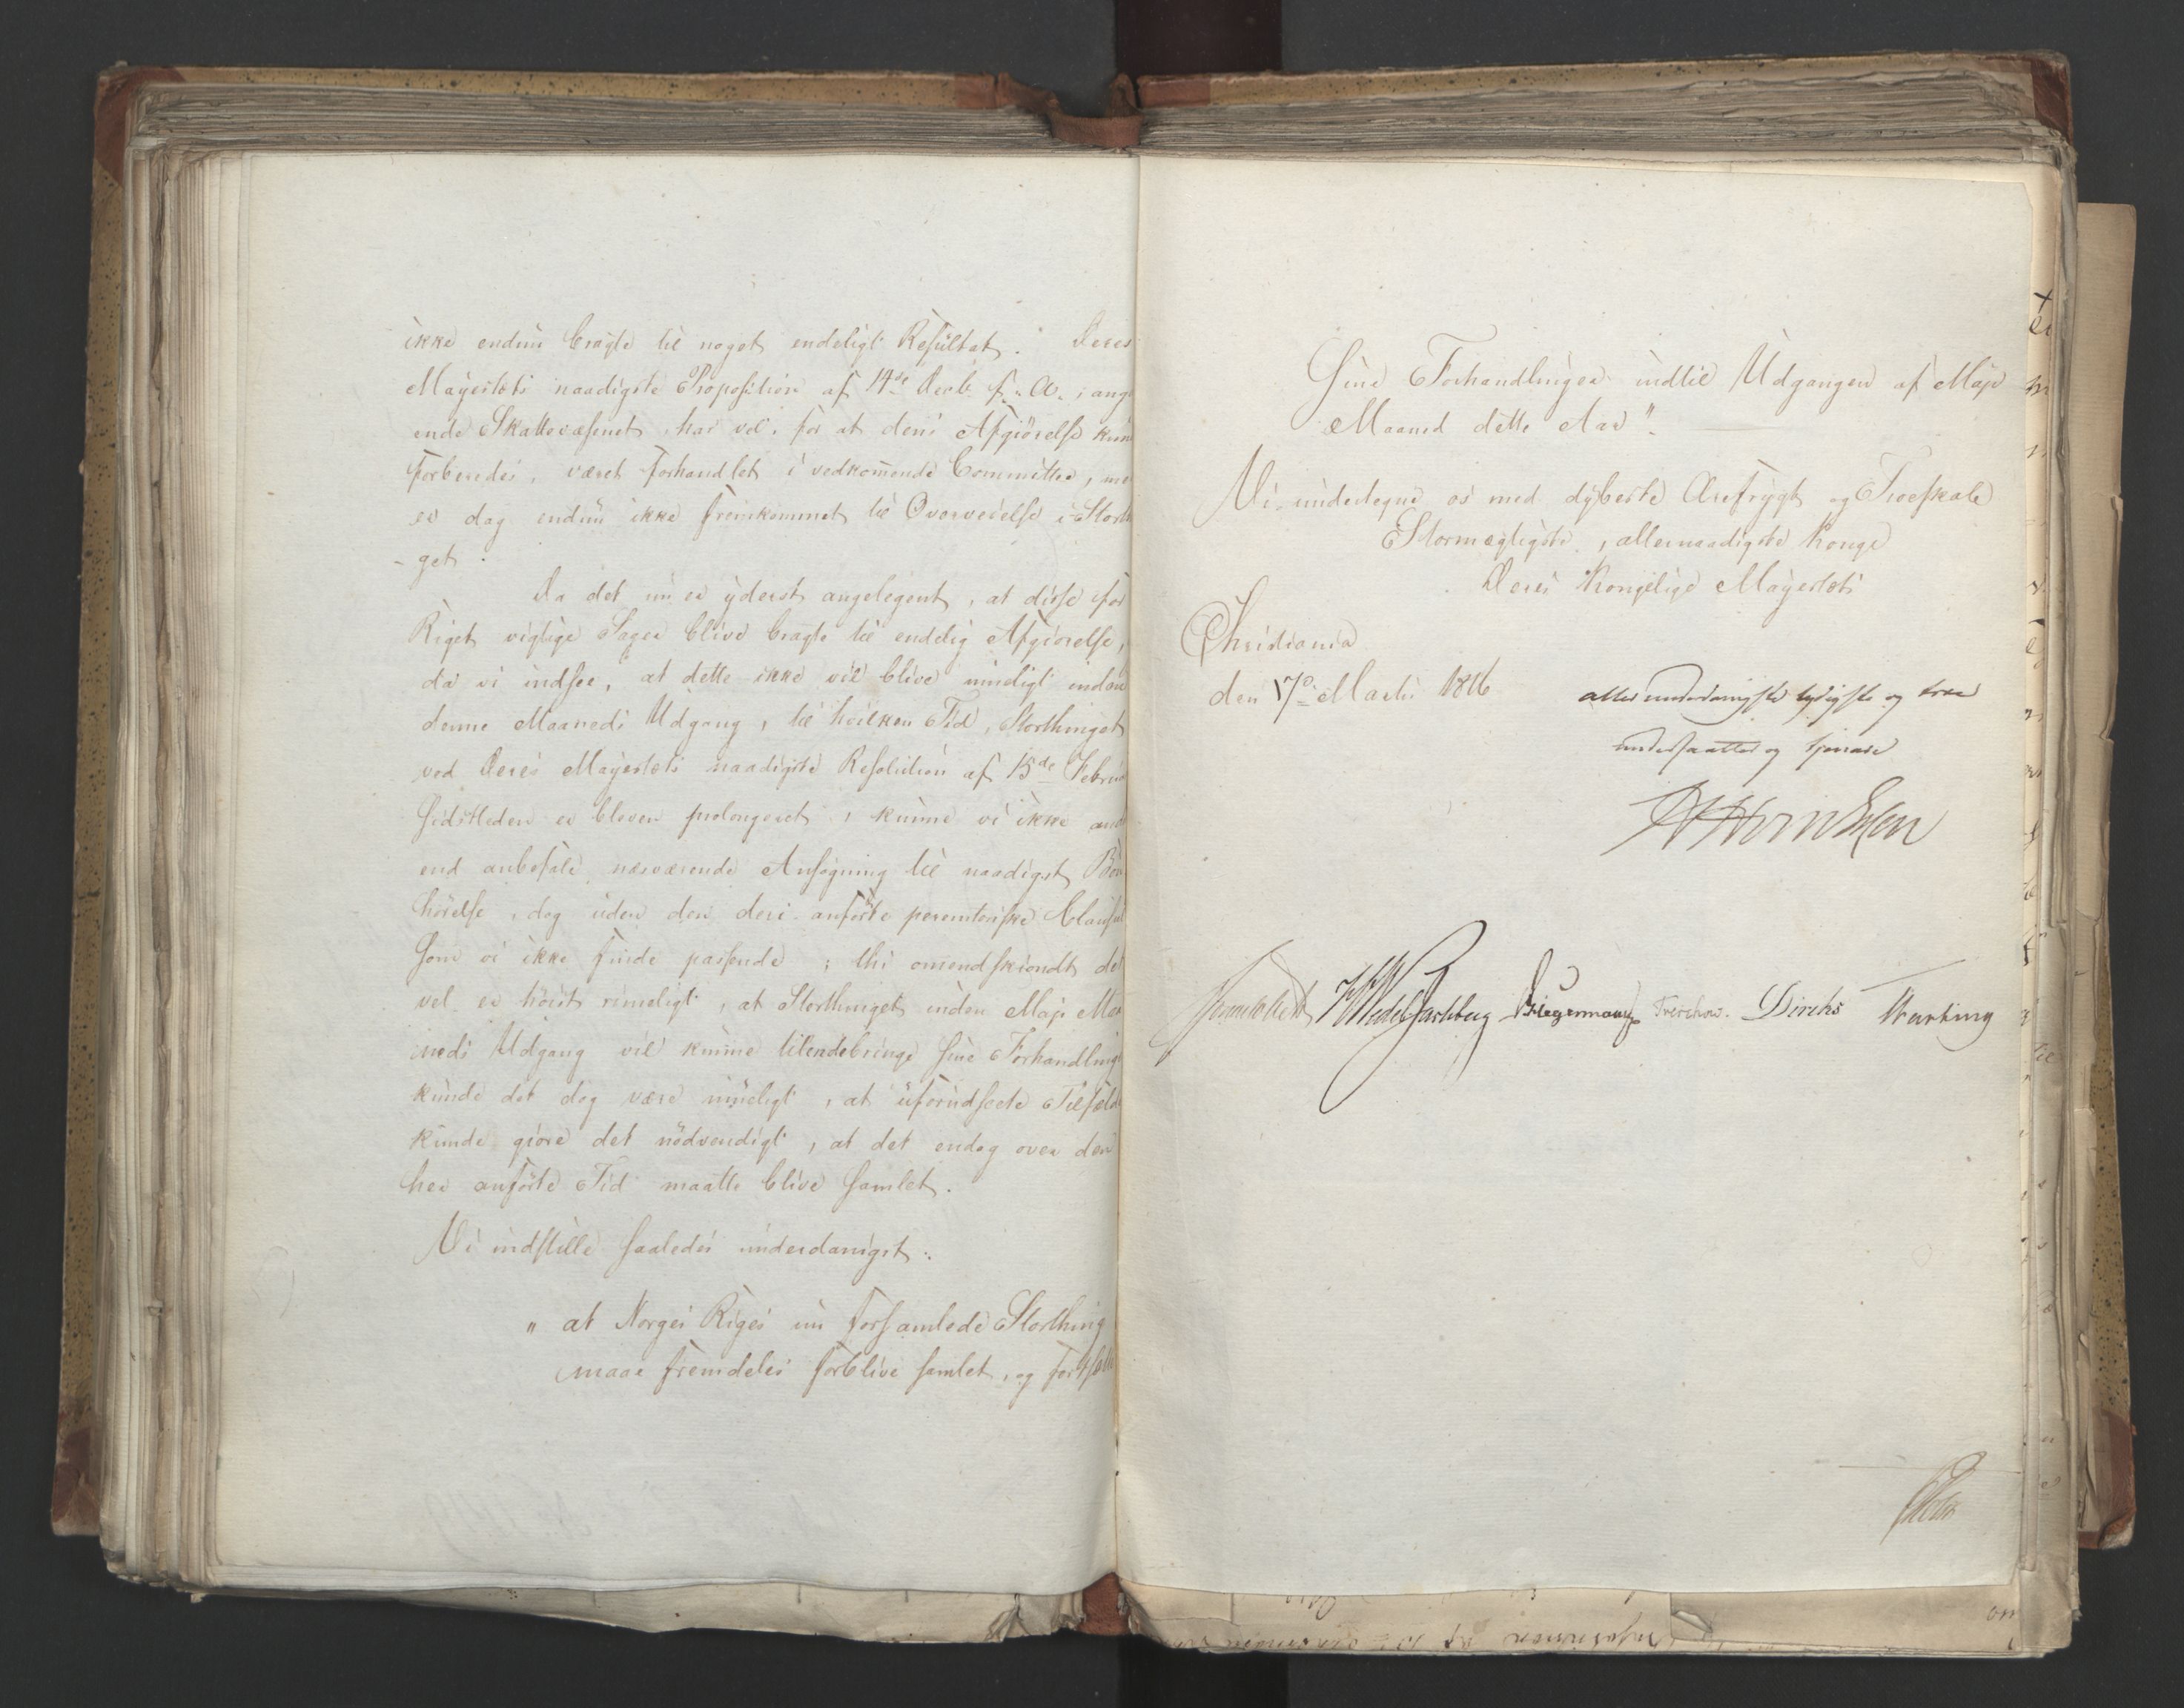 ikke endnu bragte til noget endeligt Resultat. Deres
Mayestæts naadigste Proposition af 14de Decb. f. A., ang
ende Skattevæsenet, har vel, for at dens Afgiørelse kun
forberedes, været forhandlet i vedkommende Committee, me
er dog endnu ikke fremkommet til Overveielse i Storth
-get.
Da det nu er yderst angelegent, at disse for
Riget vigtige Sager blive bragte til endelig Afgiørelse,
da vi indsee, at dette ikke vil blive mueligt inden
denne Maaneds Udgang, til hvilken Tid, Storthinget
ved Deres Mayestæts naadigste Resolution af 15de Febru
sidstleden er bleven prolongeret, kunne vi ikke and
end anbefale nærværende Ansøgning til naadigst Bøn
hørelse, dog uden den deri anførte peremtoriske Clausul
som vi ikke finde passende; thi omendskiøndt det
vel er høist rimeligt, at Storthinget inden Maji Maa
neds Udgang vil kunne tilendebringe sine Forhandling
kunde det dog være mueligt, at uforudseete Tilfæld
kunde giøre det nødvendigt, at det endog over den
her anførte Tid maatte blive samlet.
Vi indstille saaledes underdanigst:
" at Norges Riges nu forsamlede Storthing
maae fremdeles forblive samlet, og fortsætte
Sine Forhandlinger indtil Udgangen af Maji
Maaned dette Aar".
Vi undertegne os med dybeste Ærefrygt og Troeskab
Stormægtigste, allernaadigste Konge
Deres Kongelige Mayestæts
Christiania
den 17de Martii 1816
allerunderdanigste lydigste og troe
undersaatter og tjenere
Sommerhielm HWedel Jarlsberg Kriegermann Treschow. Diriks Starking